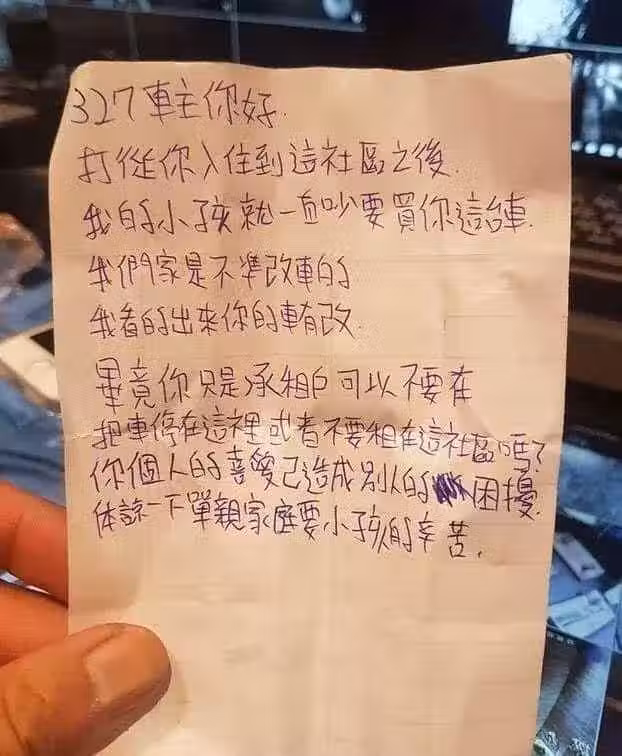 327車主你好.
打從你入住到這社區之後.
我的小孩就一直吵要買你這台車.
我們家是不準改車的
我看的出來你的車有改.
畢竟你只是承租戶可以不要在
把車停在這裡或者不要租在這社區嗎?
你個人的喜愛已造成別人的困擾.
体諒一下單親家庭要小孩的辛苦.